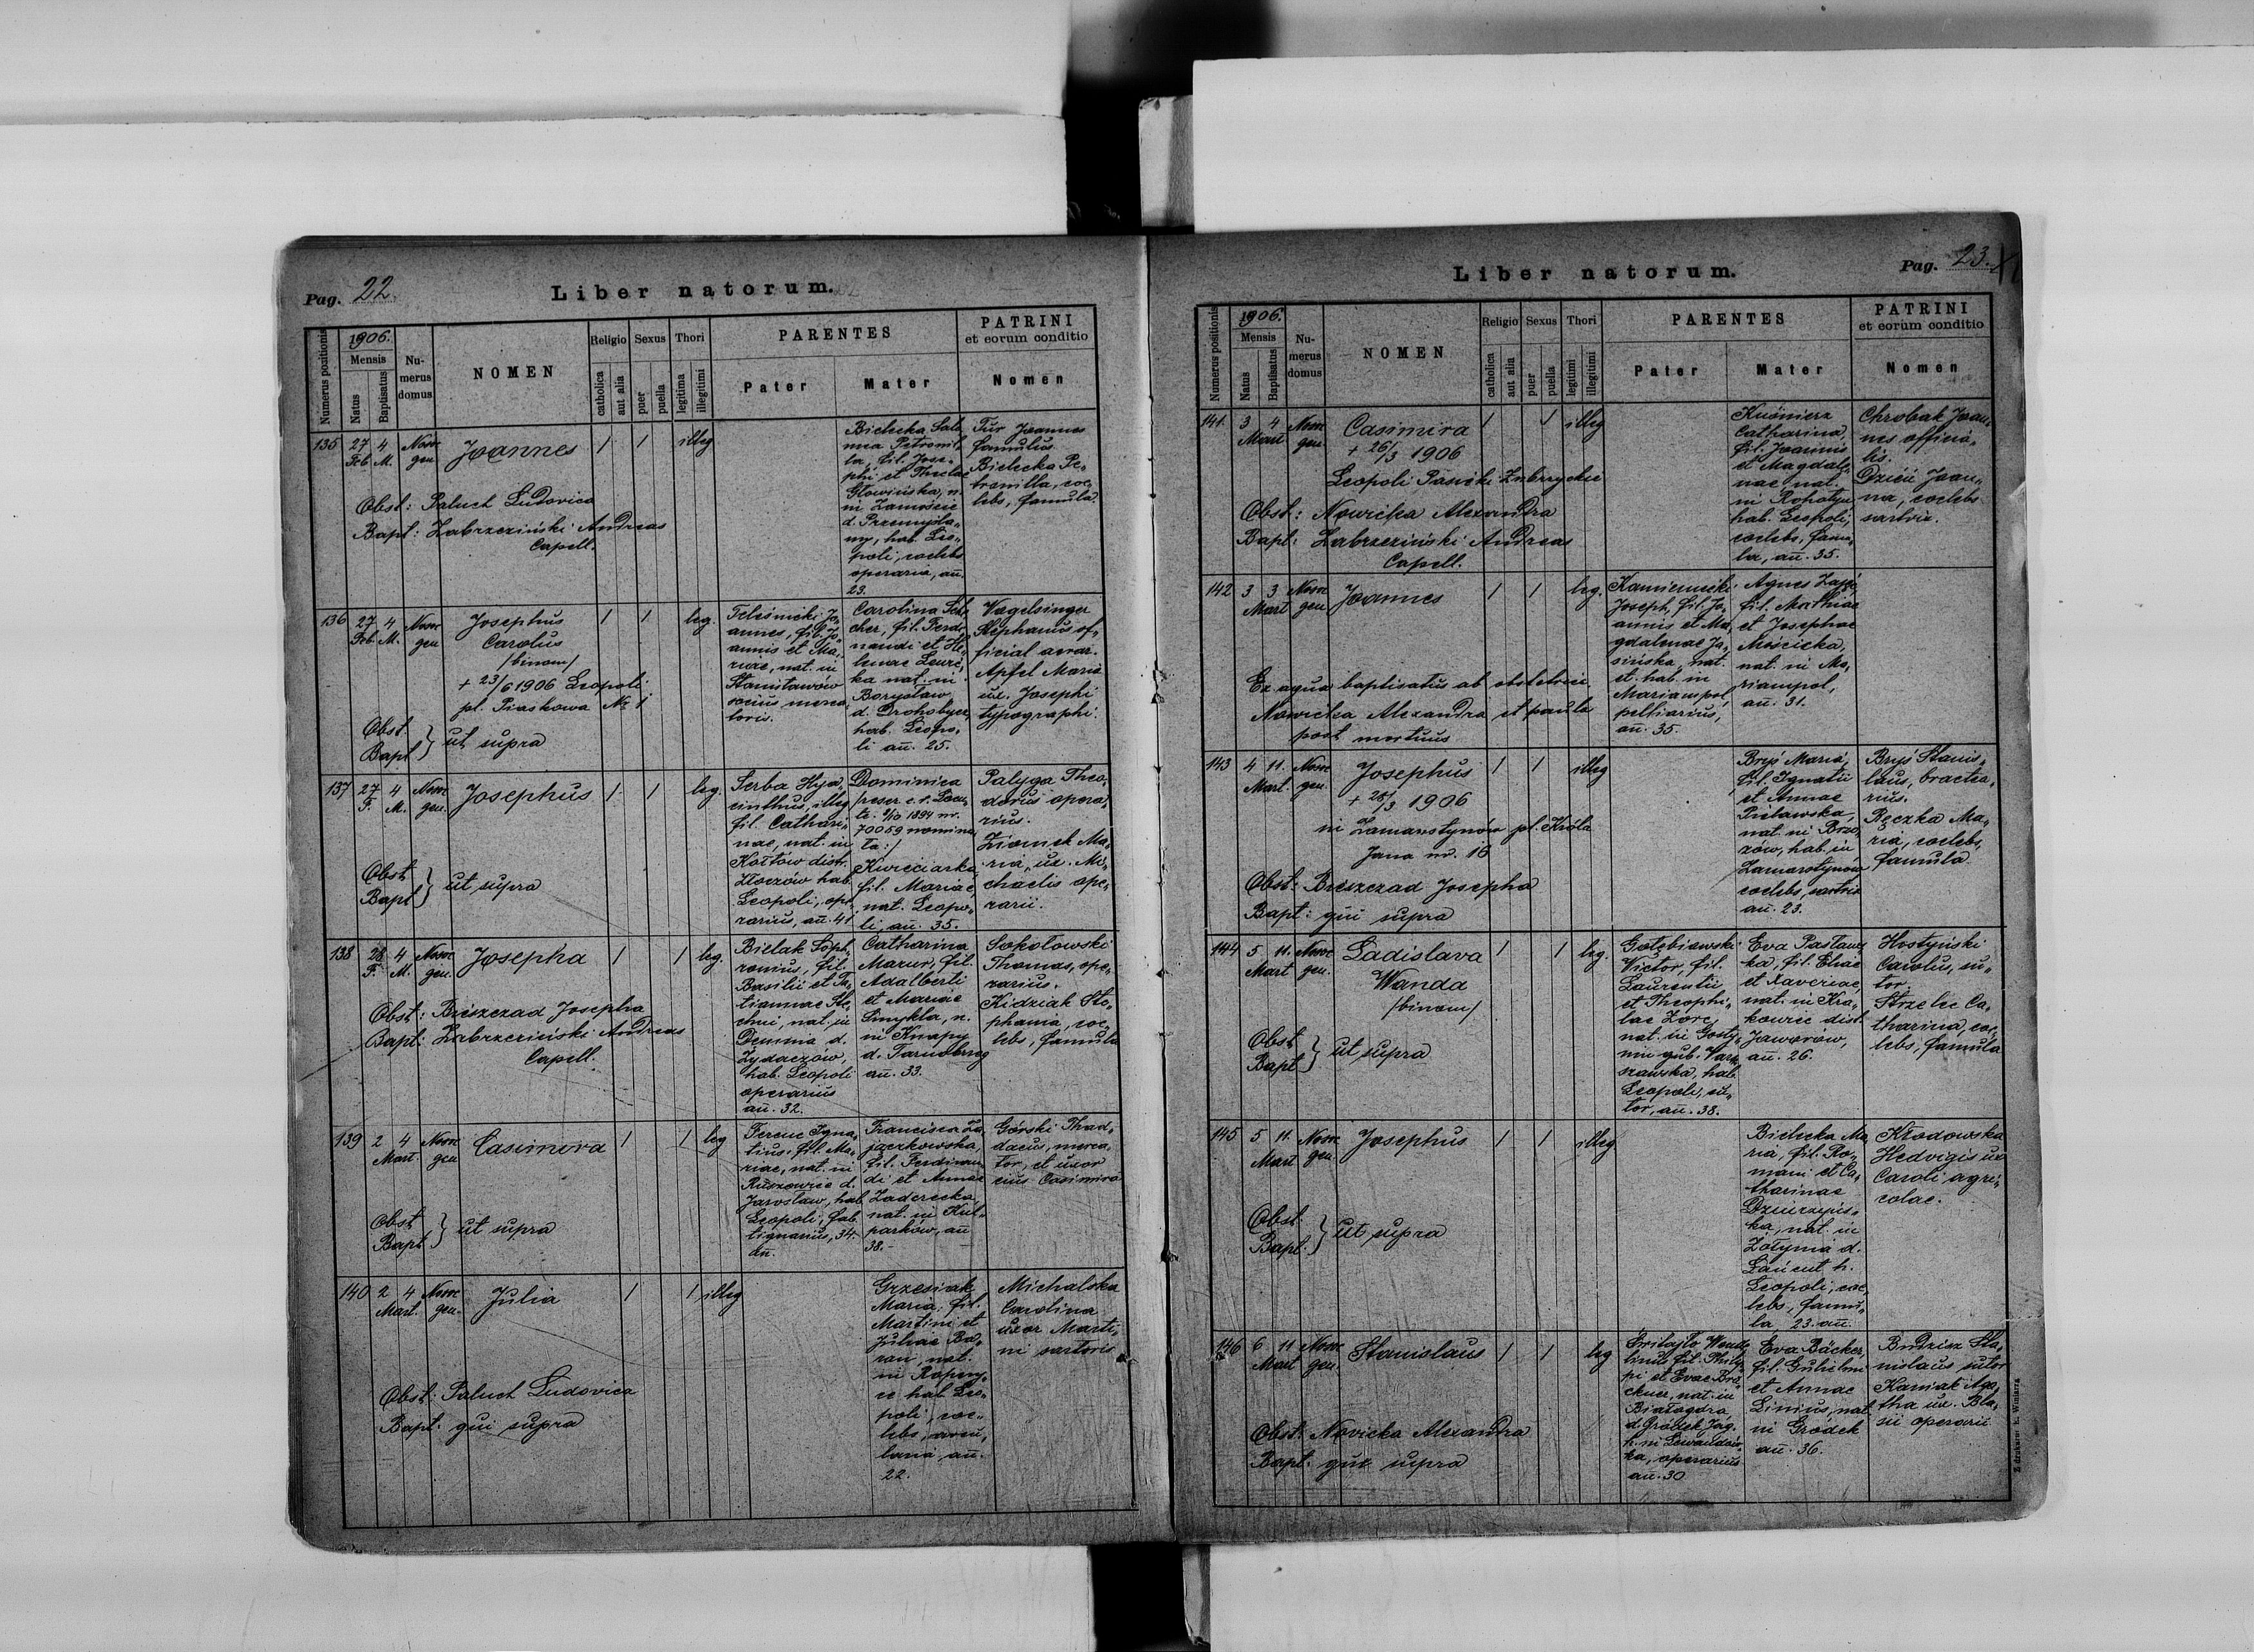 Pag. 22.
Liber natorum.
Numerus positionis
1906.
Mensis
Natus
Baptisatus
Nu-
merus
domus
NOMEN
Religio
catholica
aut alia
Sexus
puer
puella
Thori
legitima
illegitimi
PARENTES
Pater
Mater
PATRINI
et eorum conditio
Nomen
135
27 4
Feb. M.
Noso
gen
Joannes
1 1 illeg
Obst: Paluch Ludovica
Bapt: Zabrzeziński Andreas
Capell.
Bielecka Salo-
mea Petronil-
la, fil. Jose-
phi et Theclae
Głowińska, n.
in Zamoście
d. Przemyśla-
ny, hab. Leo-
poli, coelebs
operaria, an.
23.
Tur Joannes
famulus
Bielecka Pe-
tronilla, coe-
lebs, famula.
136
27 4
Feb. M.
Noso
gen
Josephus
Carolus
/binom/
+ 23/6 1906 Leopoli
pl. Piaskowa Nr. 1
1 1 leg.
Obst.
Bapt } ut supra
Teleśnicki Jo-
annes, fil. Jo-
annis et Ma-
riae, nat. in
Stanisławów
socius merca-
toris.
Carolina Sche-
cher, fil. Ferdi-
nandi et He-
lenae
nat. in
Borysław
d. Drohobycz,
hab. Leopo-
li an. 25.
Wagelsinger
Stephanus of-
ficial aerar.
Apfel Maria
ux. Josephi
typographi.
137
27 4
F. M.
Noso
gen.
Josephus
1 1 leg.
Obst
Bapt } ut supra
Serba Hya-
cinthus, illeg
fil. Cathari-
nae, nat. in
Kołtów distr.
Złoczów hab.
Leopoli, ope-
rarius, an. 41
Dominica
/peser c. r. Locu-
te. 1/10 1894 nr.
70059 nomina
ta:/
Kwieciarska,
fil. Mariae,
nat. Leopo-
li, an. 35.
Palyga Theo-
dorus opera-
rius.
Ziomek Ma-
ria, ux. Mi-
chaelis ope-
rarii.
138
28 4
F. M.
Noso
gen.
Josepha
1 1 leg.
Obst: Brészczad Josepha
Bapt: Zabrzeziński Andreas
Capell.
Bielak Soph-
ronius, fil.
Basilii et Ta-
tiannae Ste-
chni, nat. in
Demnia d.
Żydaczów,
hab. Leopoli
operarius
an. 32.
Catharina
Mazur, fil.
Adalberti
et Mariae
Smykla, n.
in Knapy
d. Tarnobrzeg
an. 33.
Sokołowski
Thomas, ope-
rarius.
Kidziak Ste-
phania, coe-
lebs, famula
139
2 4
Mart.
Noso
gen
Casimira
1 1 leg
Obst
Bapt } ut supra
Ferenc Igna-
tius, fil. Ma-
riae, nat. in
Ruszowice d.
Jarosław, hab
Leopoli, fab.
lignarius, 34.
an.
Francisca Za-
jączkowska,
fil. Ferdinan-
di et Annae
Zaderecka,
nat. in Kul-
parków, an
38.-
Górski Thad-
daeus, merca-
tor, et uxor
eius Casimira
140
2 4
Mart.
Noso
gen.
Julia
1 1 illeg
Obst: Paluch Ludovica
Bapt: qui supra
Grzesiak
Maria, fil.
Martini et
Juliae Ba-
ran, nat.
in Ropczy-
ce hab. Leo-
poli, coe-
lebs,
an.
22.
Michalska
Carolina
uxor Marti-
ni sartoris
Pag. 23.
Liber natorum.
Numerus positionis
1906.
Mensis
Natus
Baptisatus
Nu-
merus
domus
NOMEN
Religio
catholica
aut alia
Sexus
puer
puella
Thori
legitimi
illegitimi
PARENTES
Pater
Mater
PATRINI
et eorum conditio
Nomen
141.
3 4
Mart
Noso
gen
Casimira
+ 26/3 1906
Leopoli Pasieki Zubrzyckie
1 1 illeg
Obst: Nowicka Alexandra
Bapt: Zabrzeziński Andreas
Capell.
Kuśnierz
Catharina,
fil. Joannis
et Magdale-
nae nat.
in Rohatyn
hab. Leopoli,
coelebs, famu-
la, an. 35.
Chrobak Joan-
nes officia-
lis.
Dzień Joan-
na, coelebs
sartrix.
142
3 3
Mart
Noso
gen
Joannes
1 1 leg.
Ex aqua baptisatus ab obstetrice
Nowicka Alexandra et paulo
post mortuus
Kamieniecki
Joseph, fil. Jo-
annis et Ma-
gdalenae Ja-
sińska, nat.
et hab. in
Mariampol,
pelliarius,
an. 35.
Agnes Zając,
fil. Mathiae
et Josephae
Mościcka,
nat. in Ma-
riampol,
an. 31.
143
4 11.
Mart.
Noso
gen.
Josephus
+ 28/3 1906
in Zamarstynów pl. Króla
Jana nr. 16
1 1 illeg
Obst: Brészczad Josepha
Bapt: qui supra
Bryś Maria,
fil. Ignatii
et Annae
Pielawska,
nat. in Brzo-
zów, hab. in
Zamarstynów
coelebs, sartrix
an. 23.
Bryś Stanis-
laus, bractea-
rius.
Ręczka Ma-
ria, coelebs,
famula.
144
5 11.
Mart
Noso
gen.
Ladislava
Wanda
/binom/
1 1 leg.
Obst
Bapt } ut supra
Gołębiowski
Victor, fil.
Laurentii
et Theophi-
lae Zorc,
nat. in Gosty-
nin gub. War-
szawska, hab.
Leopoli, su-
tor, an. 38.
Eva Pasław-
ka, fil. Eliae
et Xaveriae,
nat. in Kra-
kowiec dist.
Jaworów,
an. 26.
Hostyński
Carolus, su-
tor.
Strzelec Ca-
tharina, coe-
lebs, famula
145
5 11.
Mart
Noso
gen.
Josephus
1 1 illeg
Obst.
Bapt. } ut supra
Bielecka Ma-
ria, fil. Ro-
mani et Ca-
tharinae
Dzierzyńs-
ka, nat. in
Żołynia d.
Łańcut h.
Leopoli, coe-
lebs, famu-
la 23. an.
Kłodowska
Hedvigis ux
Caroli agri-
colae.
146
6 11
Mart
Noso
gen.
Stanislaus
1 1 leg
Obst: Novicka Alexandra
Bapt: qui supra
Świtajło Wende-
linus fil. Philip-
pi et Evae Brü-
ckner, nat. in
Białagóra
d. Gródek Jag.
h. in Lewandów-
ka, operarius
an. 30
Eva Bäcker,
fil. Gulielmi
et Annae
Linius, nat.
in Gródek
an. 36.
Budzisz Sta-
nislaus, sutor
Kaniak Aga-
tha ux. Bla-
sii operarii
Z drukarni E. Winiarza